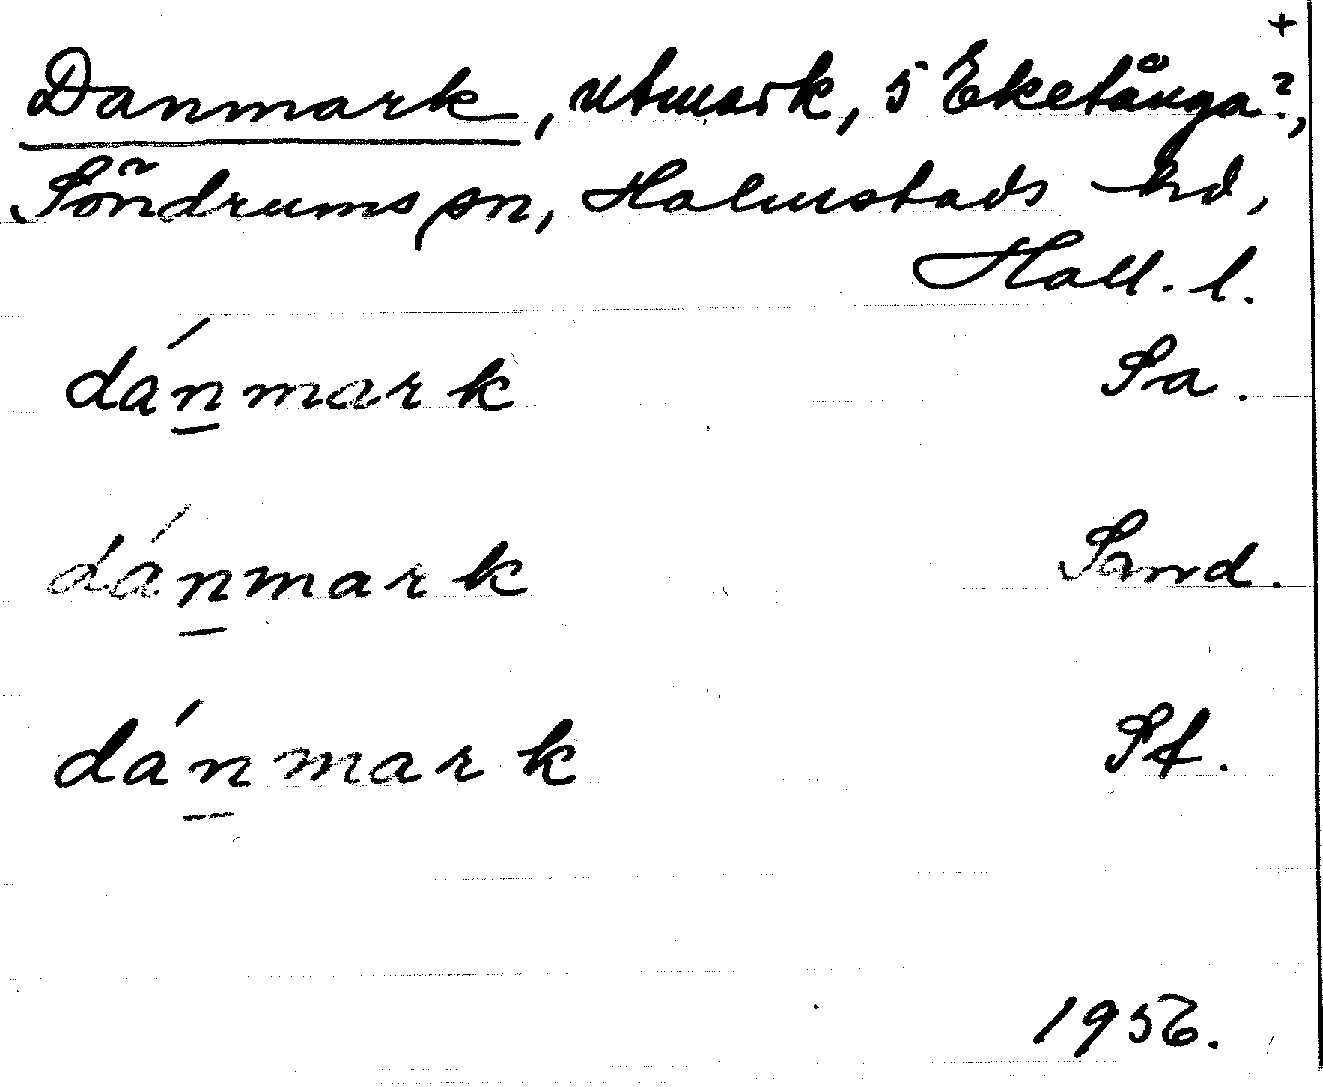 +
Danmark, utmark, 5 Eketånga?,
Söndrums sn, Halmstads hd,
Hall. l.
dánmark Sa.
dánmark Sand.
dánmark Sf.
1956.